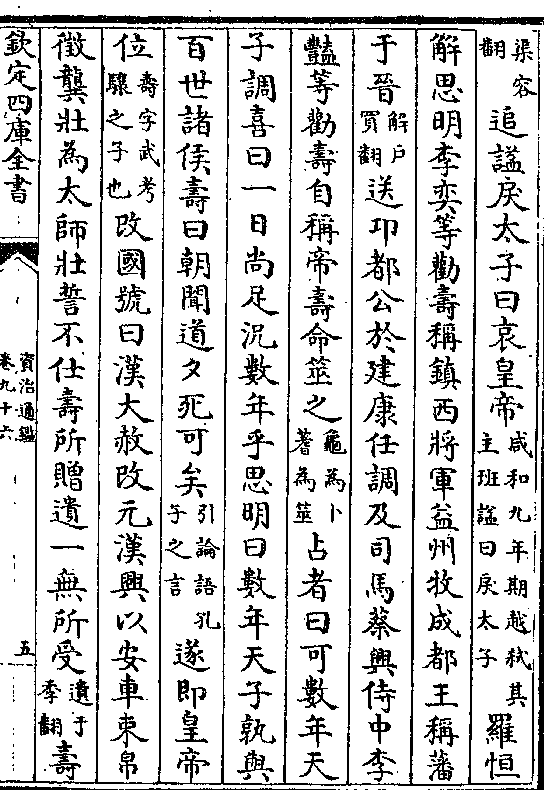 渠容翻追諡戾太子曰哀皇帝咸和九年期越弑其主班諡曰戾太子羅恒
解思明李奕等勸壽稱鎮西將軍益州牧成都王稱藩
于晉解戶買翻送邛都公於建康任調及司馬蔡興侍中李
豔等勸壽自稱帝壽命筮之龜為卜蓍為筮占者曰可數年天
子調喜曰一日尚足況數年乎思明曰數年天子孰與
百世諸侯壽曰朝聞道夕死可矣引論語孔子之言遂即皇帝
位壽字武考驤之子也改國號曰漢大赦改元漢興以安車束帛
徵龔壯為太師壯誓不仕壽所贈遺一無所受遺于季翻壽
欽定四庫全書
資治通鑑
卷九十六
五